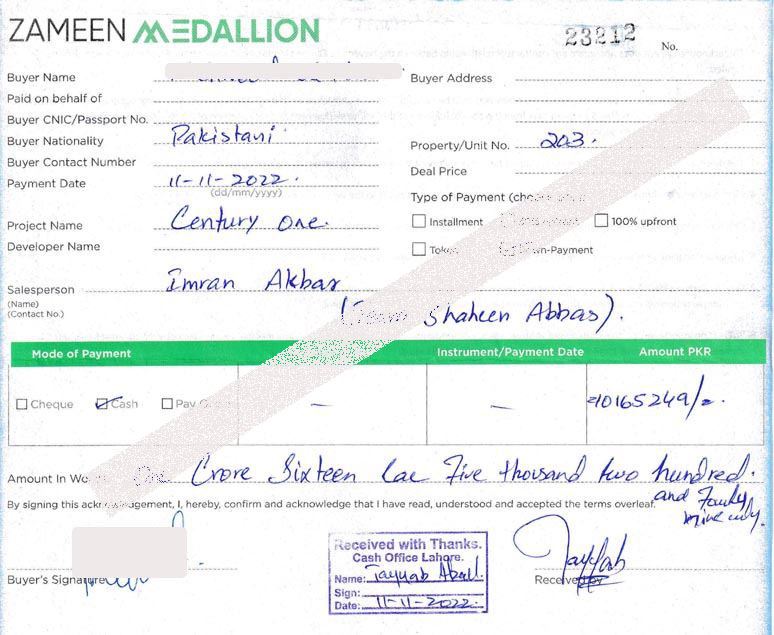 ZAMEEN MEDALLION
23212 No.
Buyer Name
Buyer Address
Paid on behalf of
Buyer CNIC/Passport No.
Buyer Nationality Pakistani
Property/Unit No. 203.
Buyer Contact Number
Deal Price
Payment Date 11-11-2022.
(dd/mm/yyyy)
Type of Payment
Project Name Century One.
Installment 100% upfront
Developer Name
Token Down-Payment
Salesperson Imran Akbar
(Name)
(Contact No.)
(Team Shaheen Abbas).
Mode of Payment Instrument/Payment Date Amount PKR
Cheque Cash Pay — — =10165249/=.
Amount In One Crore Sixteen Lac Five thousand two hundred.
and Fourty
nine only.
By signing this acknowledgement, I, hereby, confirm and acknowledge that I have read, understood and accepted the terms overleaf.
Received with Thanks.
Cash Office Lahore.
Name: Tayyab
Sign:
Date: 11-11-2022.
Buyer's Signature
Received by